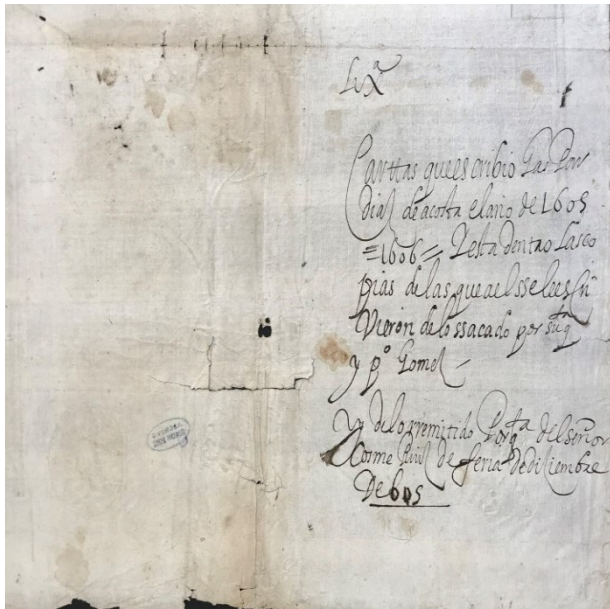 Lxª
Carttas que escribio Gaspar
Dias de acosta el ano de 1605
=1606= Y esta dentro las co
pias de las que ael sse lees
Vieron de lo ssacado por su qta
y pº Gomes
y de lo rremitido Por qta del señor
Cosme Ruis de feria de diciembre
De 605